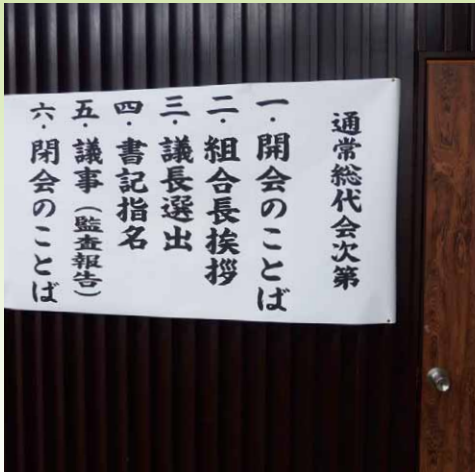 通常総代会次第
一・開会のことば
二・組合長挨拶
三・議長選出
四・書記指名
五・議事（監査報告）
六・閉会のことば